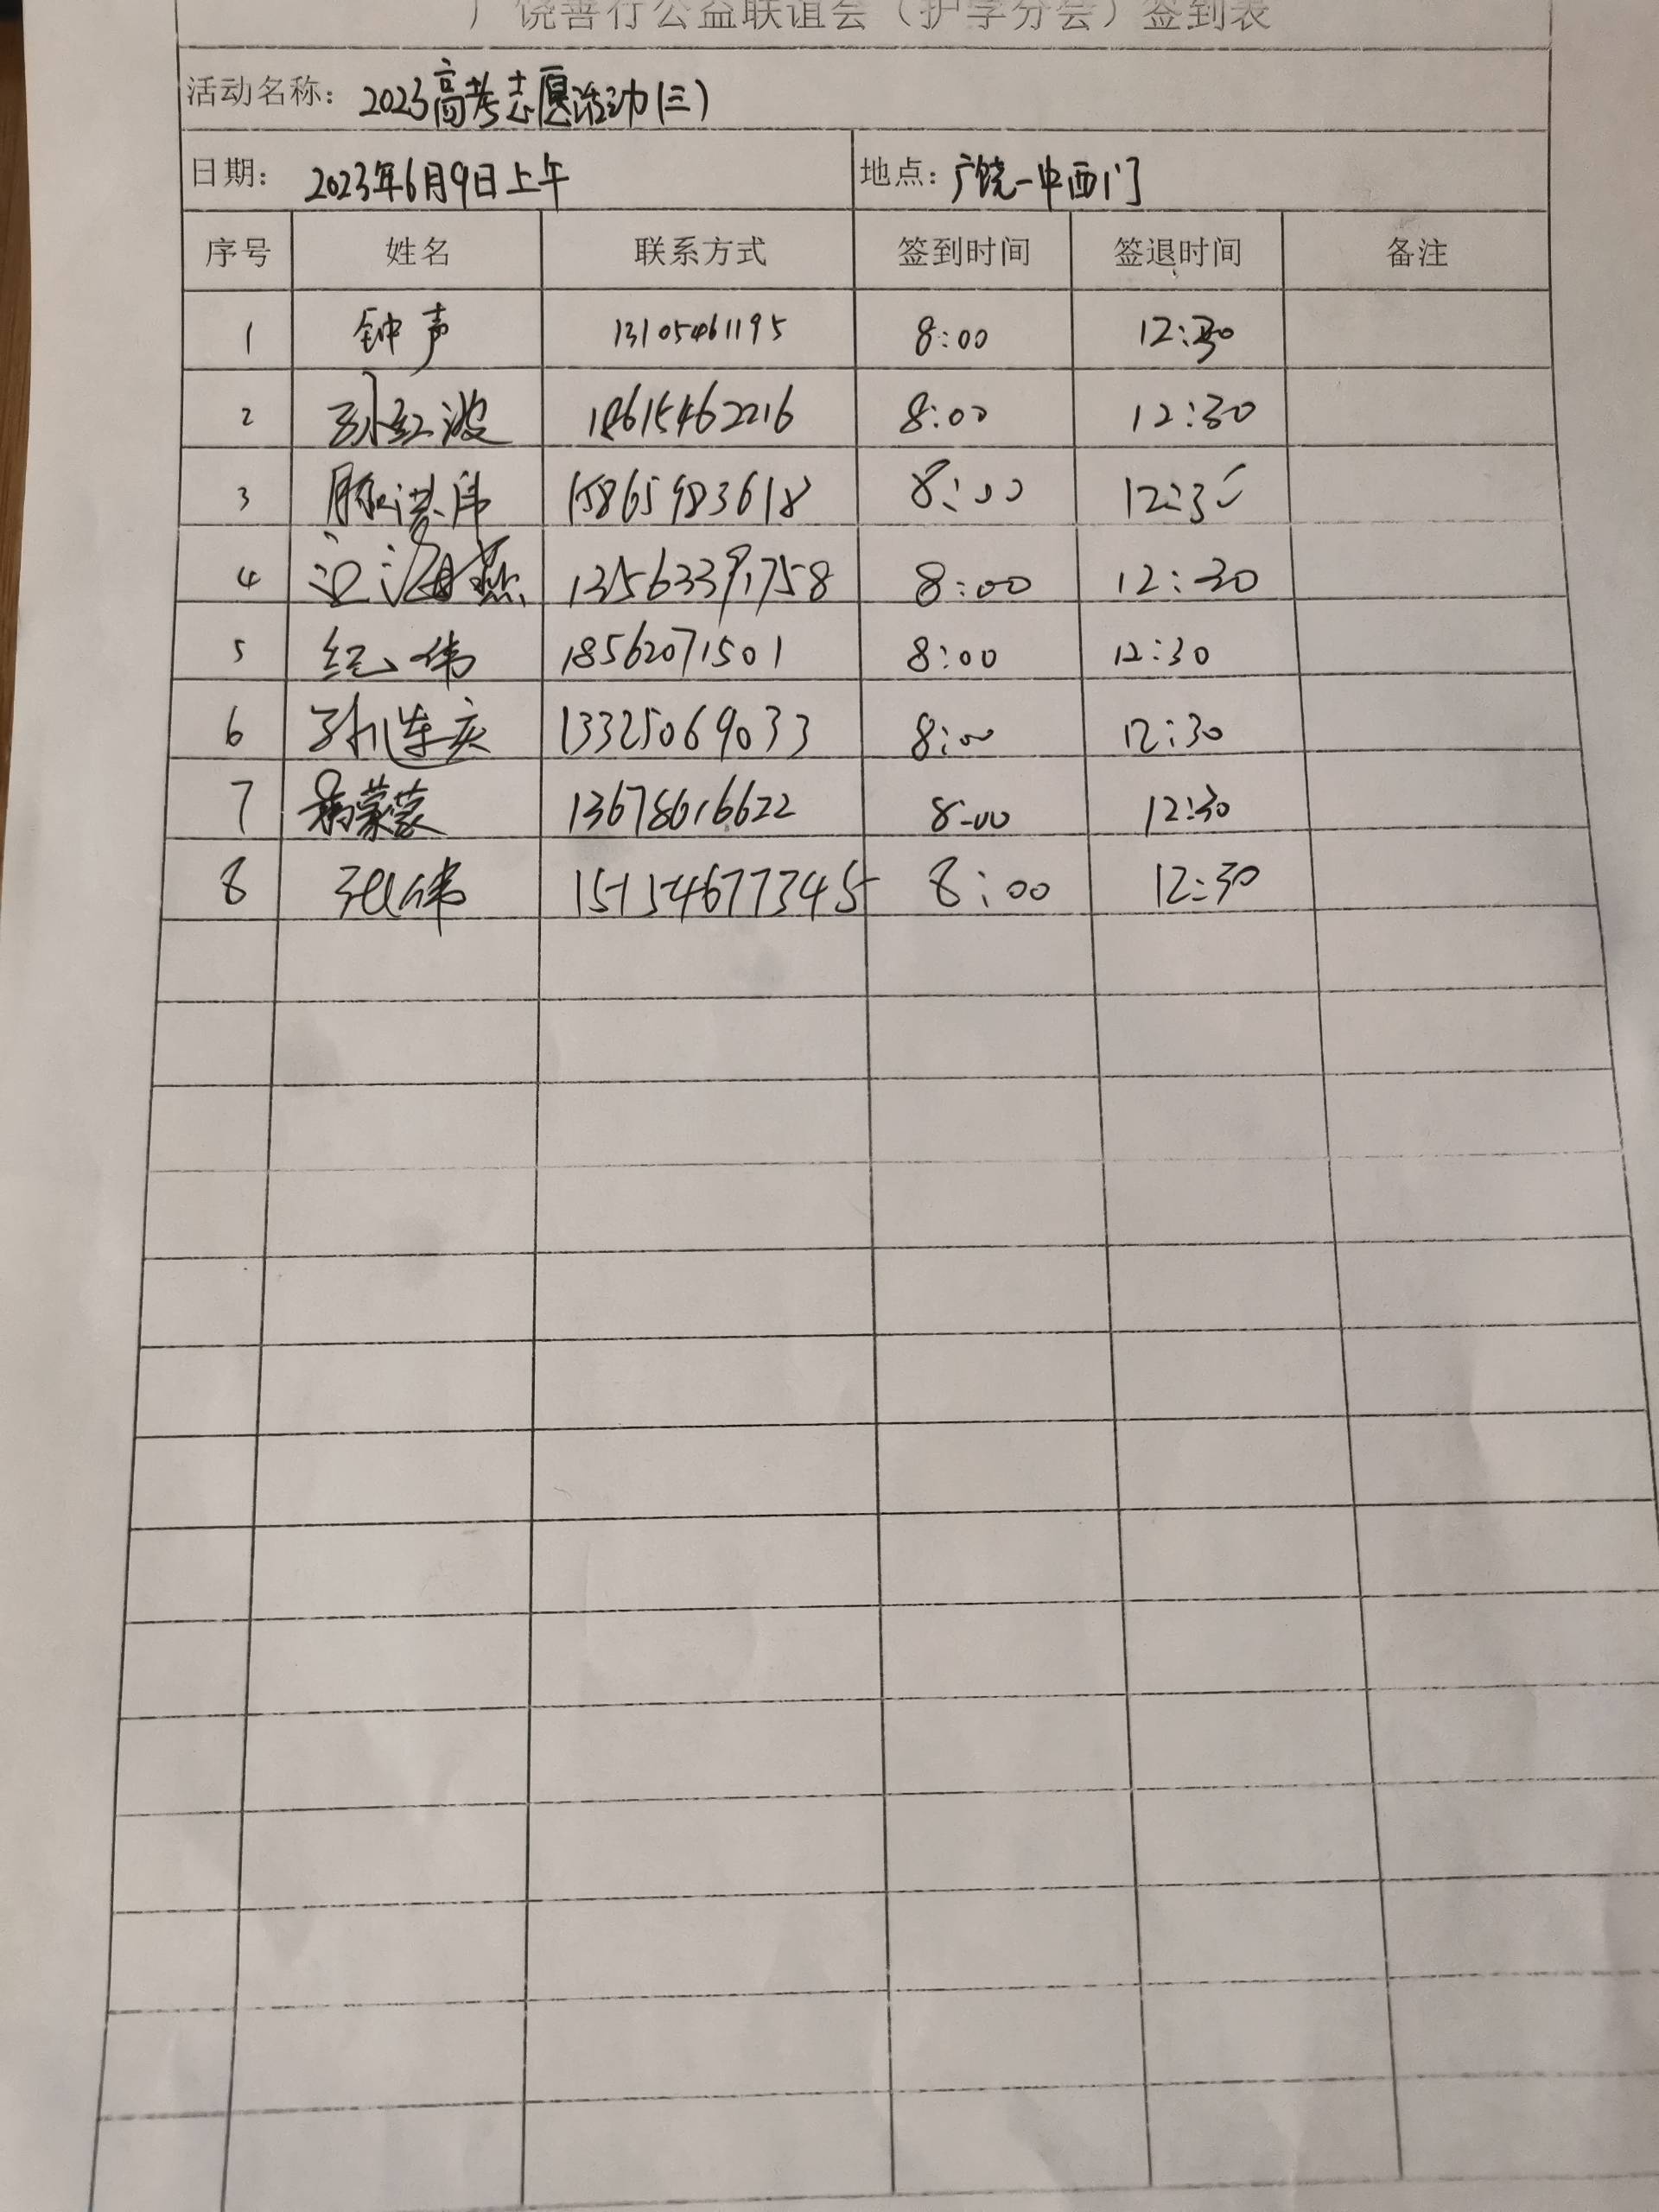 广饶善行公益联谊会（护学分会）签到表
活动名称： 2023高考志愿活动(三)
日期： 2023年6月9日上午 地点： 广饶一中西门
序号 姓名 联系方式 签到时间 签退时间 备注
1 钟声 13105461195 8:00 12:30
2 孙红波 18615462216 8:00 12:30
3 15865983618 8:00 12:30
4 海燕 8:00 12:30
5 纪伟 18562071501 8:00 12:30
6 孙连庆 13325069033 8:00 12:30
7 蒙蒙 13678616622 8:00 12:30
8 张伟 15154677345 8:00 12:30